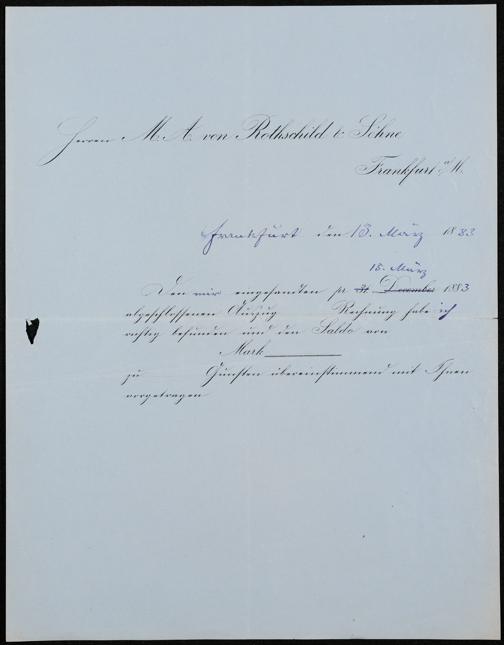 Herren M. A. von Rothschild & Söhne
Frankfurt a/M.
Frankfurt den 13. März 1883
15. März
Den mir eingesandten pr 31. December 1883
abgeschlossenen Auszug Rechnung habe ich
richtig befunden und den Saldo von
Mark
zu Gunsten übereinstimmend mit Ihnen
vorgetragen